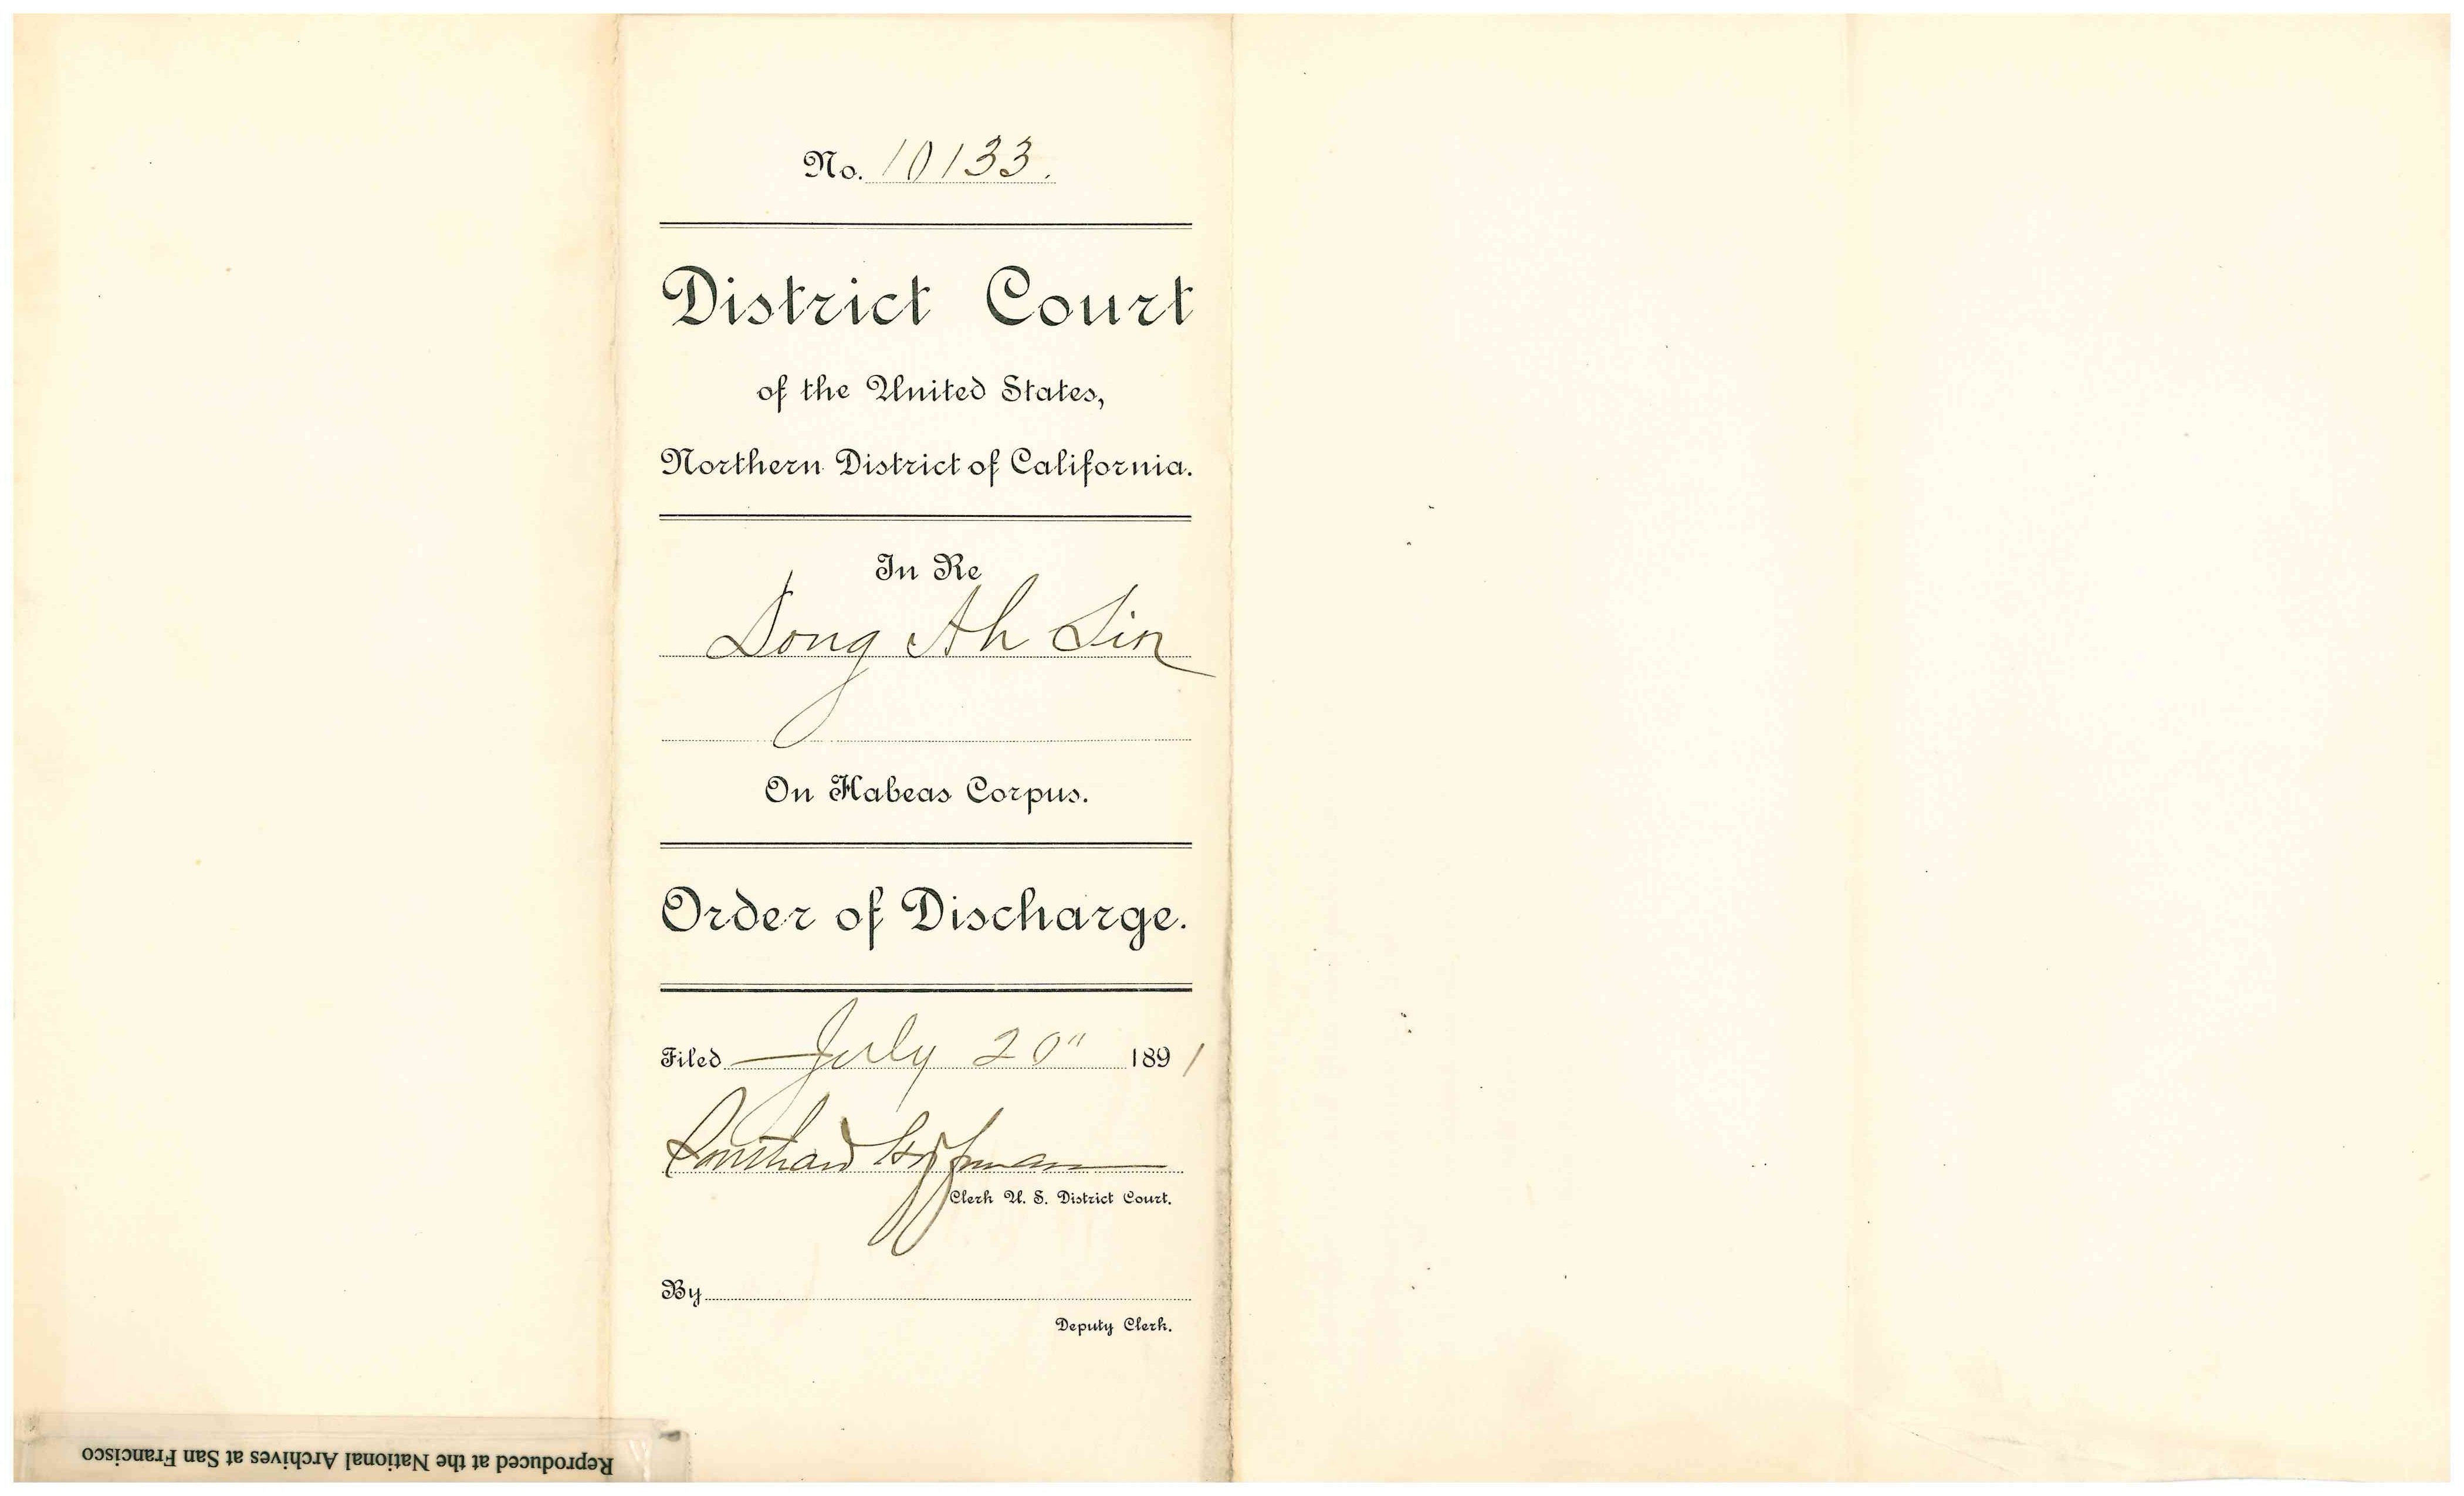 No. 10133.
District Court
of the United States,
Northern District of California.
In Re
Ah
On Habeas Corpus.
Order of Discharge.
Filed July 20" 1891
Southard Hoffman
Clerk U. S. District Court.
By
Deputy Clerk.
Reproduced at the National Archives at San Francisco